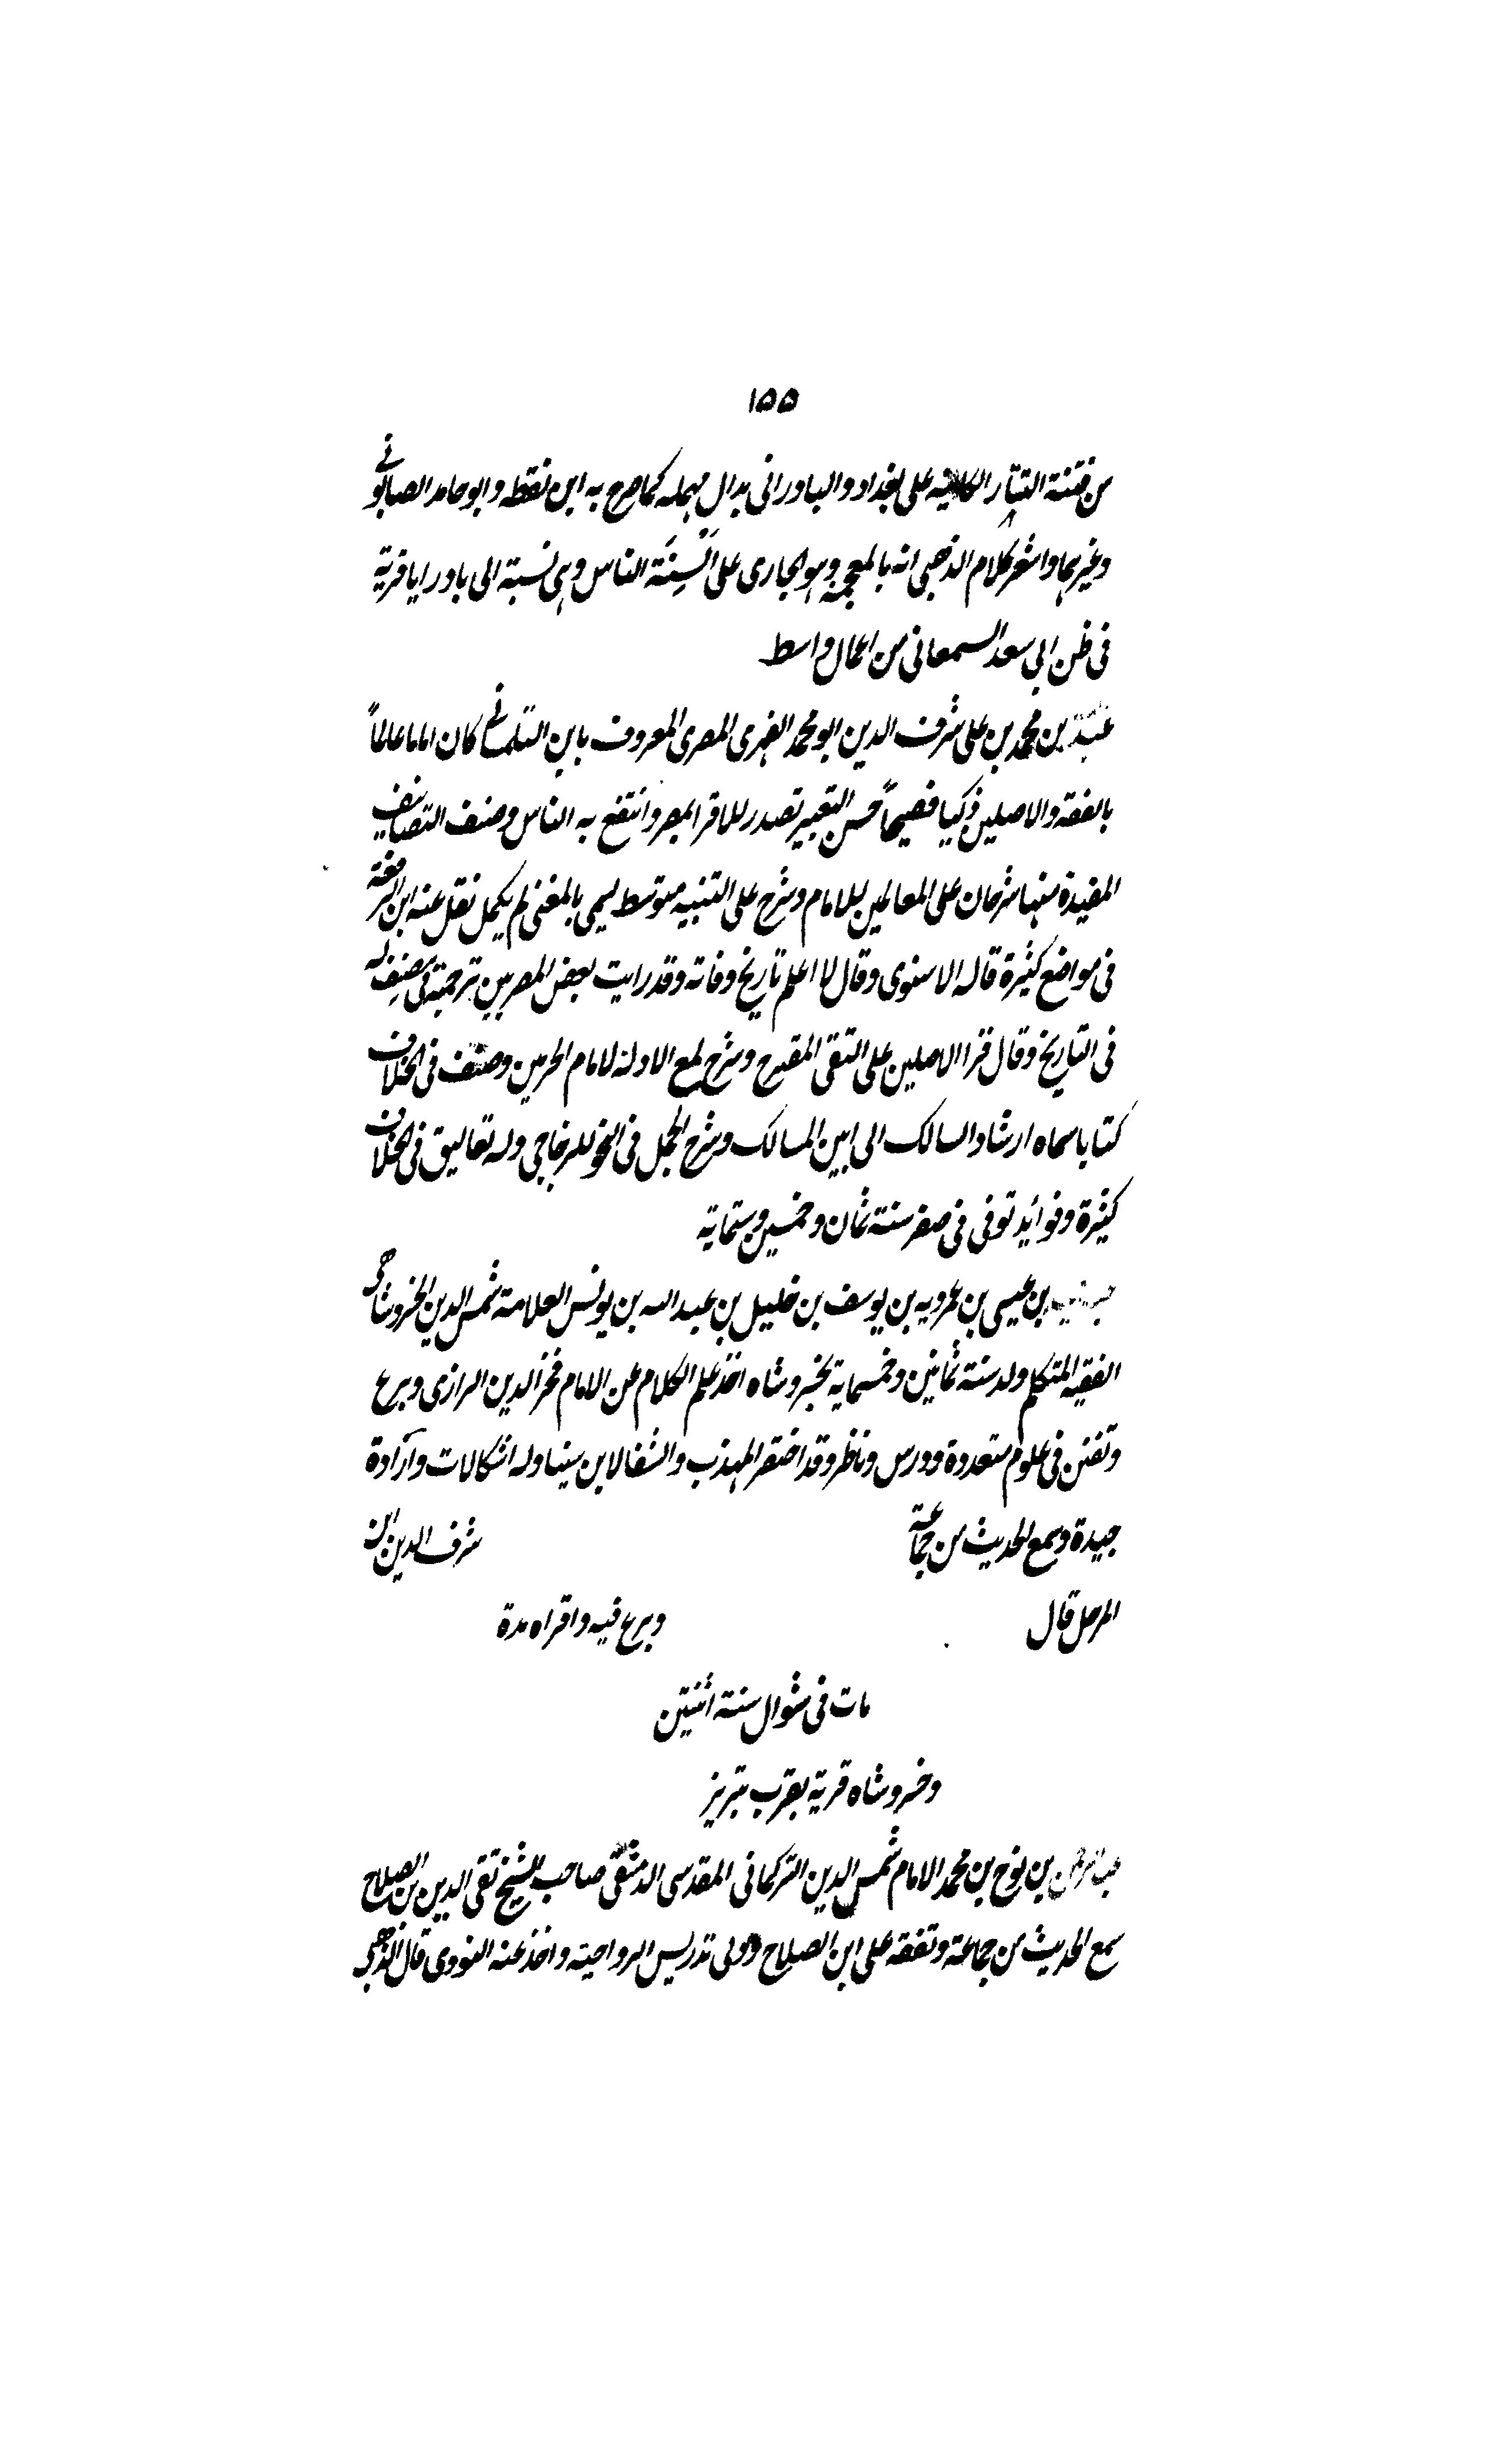 ۱۵۵
من فتنة التتار الكائنة على بغداد والبادرانى بدال مهمله كما صرح به ابن نقطه وابو حامد الصابونى
وغيرهما واشعر كلام الذهبى انه بالمعجمة وهو الجارى على اَلْسِنَة الناس وهى نسبة الى بادرايا قرية
فى ظن ابى سعد السمعانى من اعمال واسط
بن محمد بن على شرف الدين ابو محمد الفهرى المصرى المعروف بابن التلمسانى كان اماما عالماً
بالفقه والاصلين ذكيا فصيحاً حسن التعبير تصدر للاقرا بمصر وانتفع به الناس وصنف التصانيف
المفيدة منها شرحان على المعالمين للامام وشرح على التنبيه متوسط يسمى بالمغنى لم يكمل نقل عنه ابن الرفعة
فى مواضع كثيرة قاله الاسنوى وقال لا اعلم تاريخ وفاته وقد رايت بعض المصريين ترجمته فى مصنف له
فى التاريخ وقال قرا الاصلين على التقى المقترح وشرح لمع الادلة لامام الحرمين وصنف فى الخلاف
كتابا سماه ارشاد السالك الى ابين المسالك وشرح الجمل فى النحو للزجاجى وله تعاليق فى الخلاف
كثيرة وفوائد توفى فى صفر سنة ثمان وخمسين وستماية
بن عيسى بن عمرويه بن يوسف بن خليل بن عبد الله بن يونس العلامة شمس الدين الخسروشاهى
الفقيه المتكلم ولد سنة ثمانين وخمسماية بخسروشاه اخذ علم الكلام عن الامام فخر الدين الرازى وبرع
وتفنن فى علوم متعددة ودرس وناظر وقد اختصر المهذب والشفا لابن سينا وله اشكالات وآرادة
جيدة وسمع الحديث من جماعة شرف الدين ابن
المرحل قال وبرع فيه واقراه مدة
مات فى شوال سنة اثنتين
وخسروشاه قرية بقرب تبريز
عبد الرحمن بن نوح بن محمد الامام شمس الدين التركمانى المقدسى الدمشقى صاحب الشيخ تقى الدين بن الصلاح
سمع الحديث من جماعة وتفقه على ابن الصلاح وولى تدريس الرواحية واخذ عنه النووى قال الذهبى